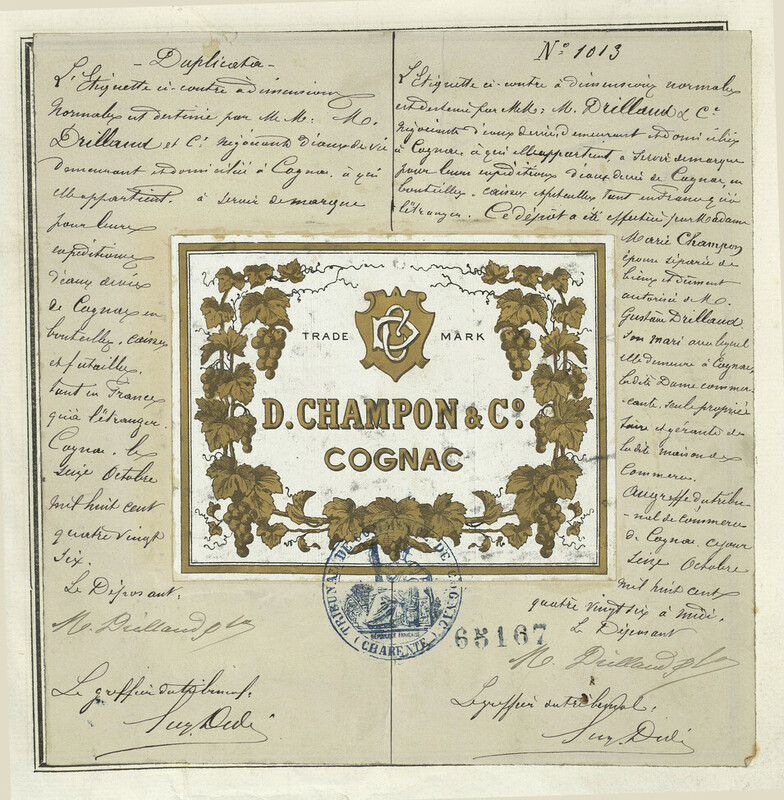 Duplicata
L'Etiquette ci-contre à dimensions
normales est destinée par MM: M.
Drillaud et Cie négociants d'eaux de vie
demeurant et domiciliés à Cognac, à qui
elle appartient, à servir de marque
pour leurs
expéditions
d'eaux de vie
de Cognac en
bouteilles, caisses
et futailles,
tant en France
qu'à l'étranger.
Cognac, le
seize Octobre
mil huit cent
quatre vingt
six.
Le Déposant:
M. Drillaud & Cie
Le greffier du tribunal:
No 1013
L'Etiquette ci-contre à dimensions normales
est destinée par MM: M. Drillaud & Cie
négociants d'eaux de vie demeurant et domiciliés
à Cognac, à qui elle appartient, à servir de marque
pour leurs expéditions d'eaux de vie de Cognac, en
bouteilles, caisses et futailles tant en France qu'à
l'étranger. Ce dépôt a été effectué par Madame
Marie Champon
épouse séparée de
biens et dûment
autorisée de M.
Gustave Drillaud
son mari avec lequel
elle demeure à Cognac,
la dite Dame commer-
çante, seule proprié-
taire et gérante de
la dite maison de
Commerce.
Au greffe du tribu-
nal de commerce
de Cognac ce jour
seize Octobre
mil huit cent
quatre vingt six à midi.
Le Déposant
M. Drillaud & Cie
Le greffier du tribunal:
TRADE MARK
D. CHAMPON & Co.
COGNAC
TRIBUNAL DE COMMERCE DE COGNAC
RÉPUBLIQUE FRANÇAISE
(CHARENTE)
65167